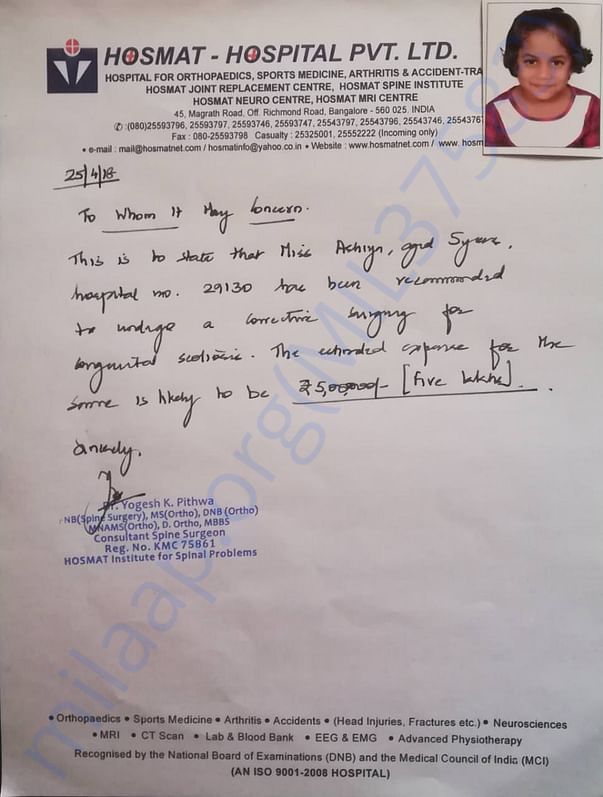 HOSMAT - HOSPITAL PVT. LTD.
HOSPITAL FOR ORTHOPAEDICS, SPORTS MEDICINE, ARTHRITIS & ACCIDENT-TRA
HOSMAT JOINT REPLACEMENT CENTRE, HOSMAT SPINE INSTITUTE
HOSMAT NEURO CENTRE, HOSMAT MRI CENTRE
45, Magrath Road, Off. Richmond Road, Bangalore - 560 025. INDIA
✆ :(080)25593796, 25593797, 25593746, 25593747, 25547971, 25543796, 25543746, 2554376
Fax : 080-25593798 Casualty : 25325001, 25552222 (Incoming only)
• e-mail : mail@hosmatnet.com / hosmatinfo@yahoo.co.in • Website : www.hosmatnet.com / www. hosm
25/4/18
To Whom It May Concern.
This is to state that Miss , aged 5 years,
hospital no. 29130 has been recommended
to undergo a corrective surgery for
congenital scoliosis. The estimated expense for the
same is likely to be ₹5,00,000/- [five lakhs].
Sincerely,
Dr. Yogesh K. Pithwa
NB(Spine Surgery), MS(Ortho), DNB (Ortho)
MNAMS(Ortho), D. Ortho, MBBS
Consultant Spine Surgeon
Reg. No. KMC 75861
HOSMAT Institute for Spinal Problems
milaap.org(MIL3758
• Orthopaedics • Sports Medicine • Arthritis • Accidents • (Head Injuries, Fractures etc.) • Neurosciences
• MRI • CT Scan • Lab & Blood Bank • EEG & EMG • Advanced Physiotherapy
Recognised by the National Board of Examinations (DNB) and the Medical Council of India (MCI)
(AN ISO 9001-2008 HOSPITAL)